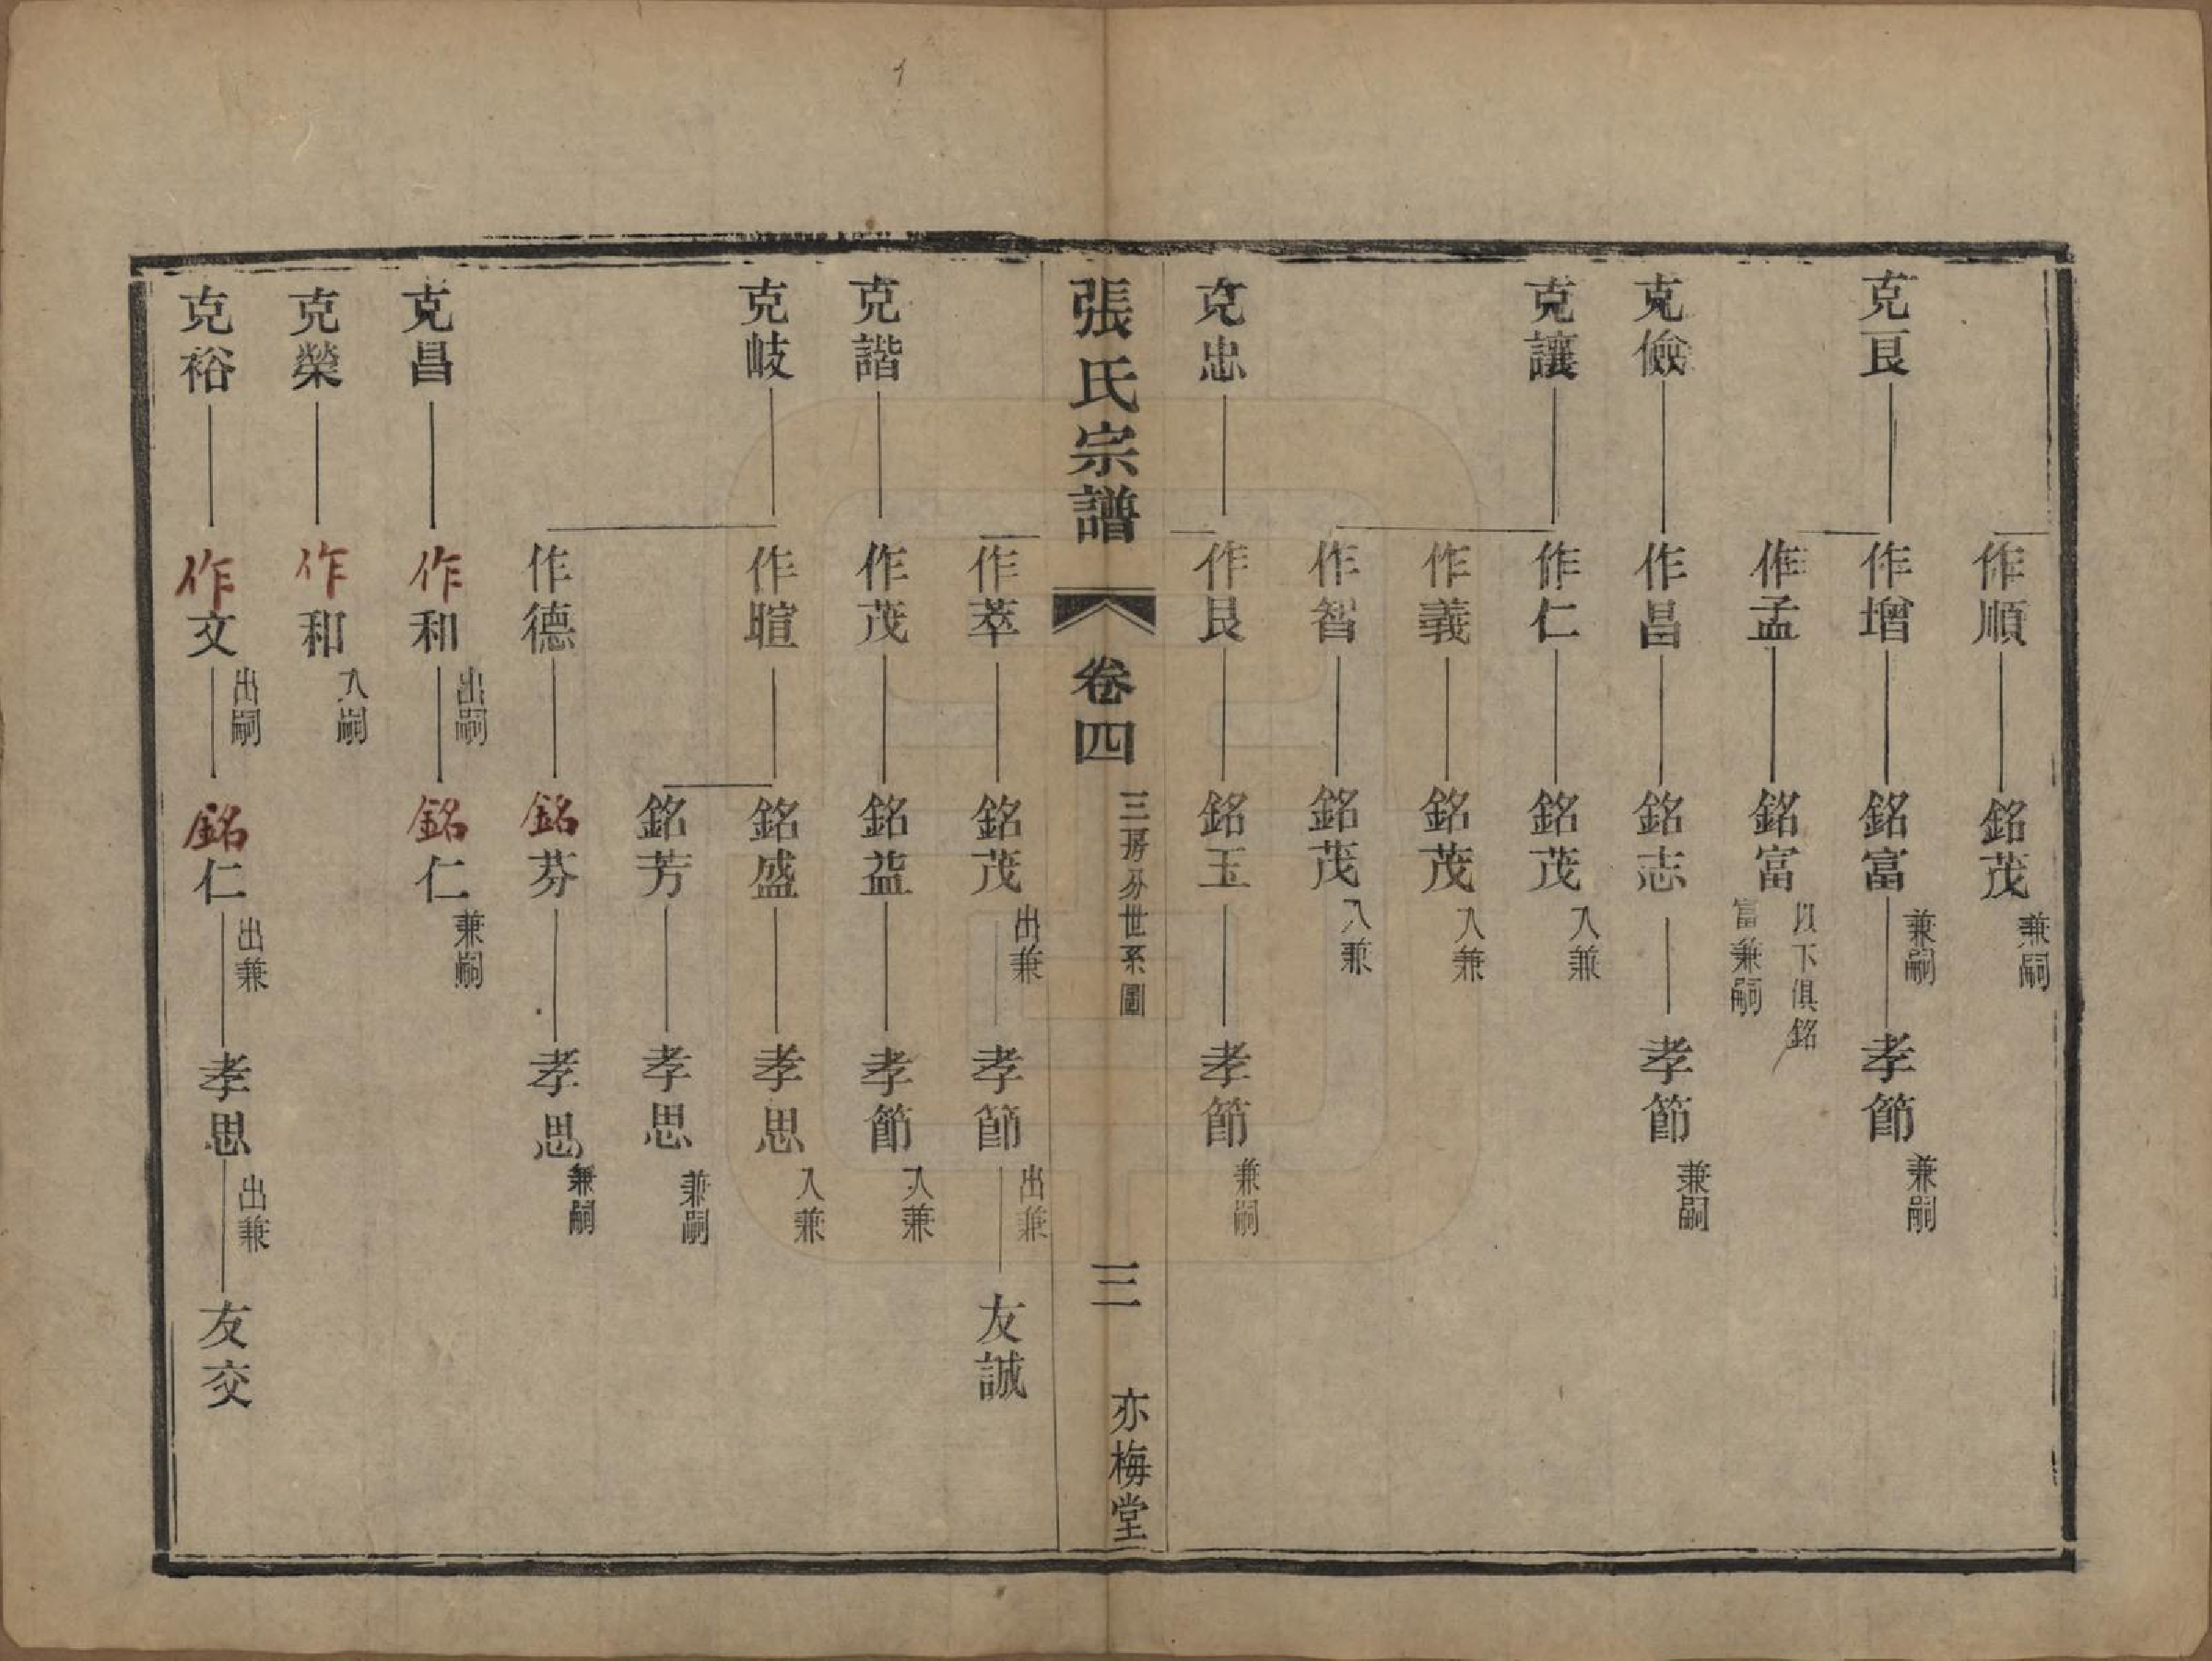 作順 銘茂 兼嗣
克艮 作增 銘富 兼嗣 孝節 兼嗣
作孟 銘富 以下俱銘富兼嗣
克儉 作昌 銘志 孝節 兼嗣
克讓 作仁 銘茂 入兼
作義 銘茂 入兼
作智 銘茂 入兼
克忠 作艮 銘玉 孝節 兼嗣
張氏宗譜 卷四 三房分世系圖 三 亦梅堂
作萃 銘茂 出兼 孝節 出兼 友誠
克諧 作茂 銘益 孝節 入兼
克岐 作暄 銘盛 孝思 入兼
銘芳 孝思 兼嗣
作德 銘芬 孝思 兼嗣
克昌 作和 出嗣 銘仁 兼嗣
克榮 作和 入嗣
克裕 作文 出嗣 銘仁 出兼 孝思 出兼 友交